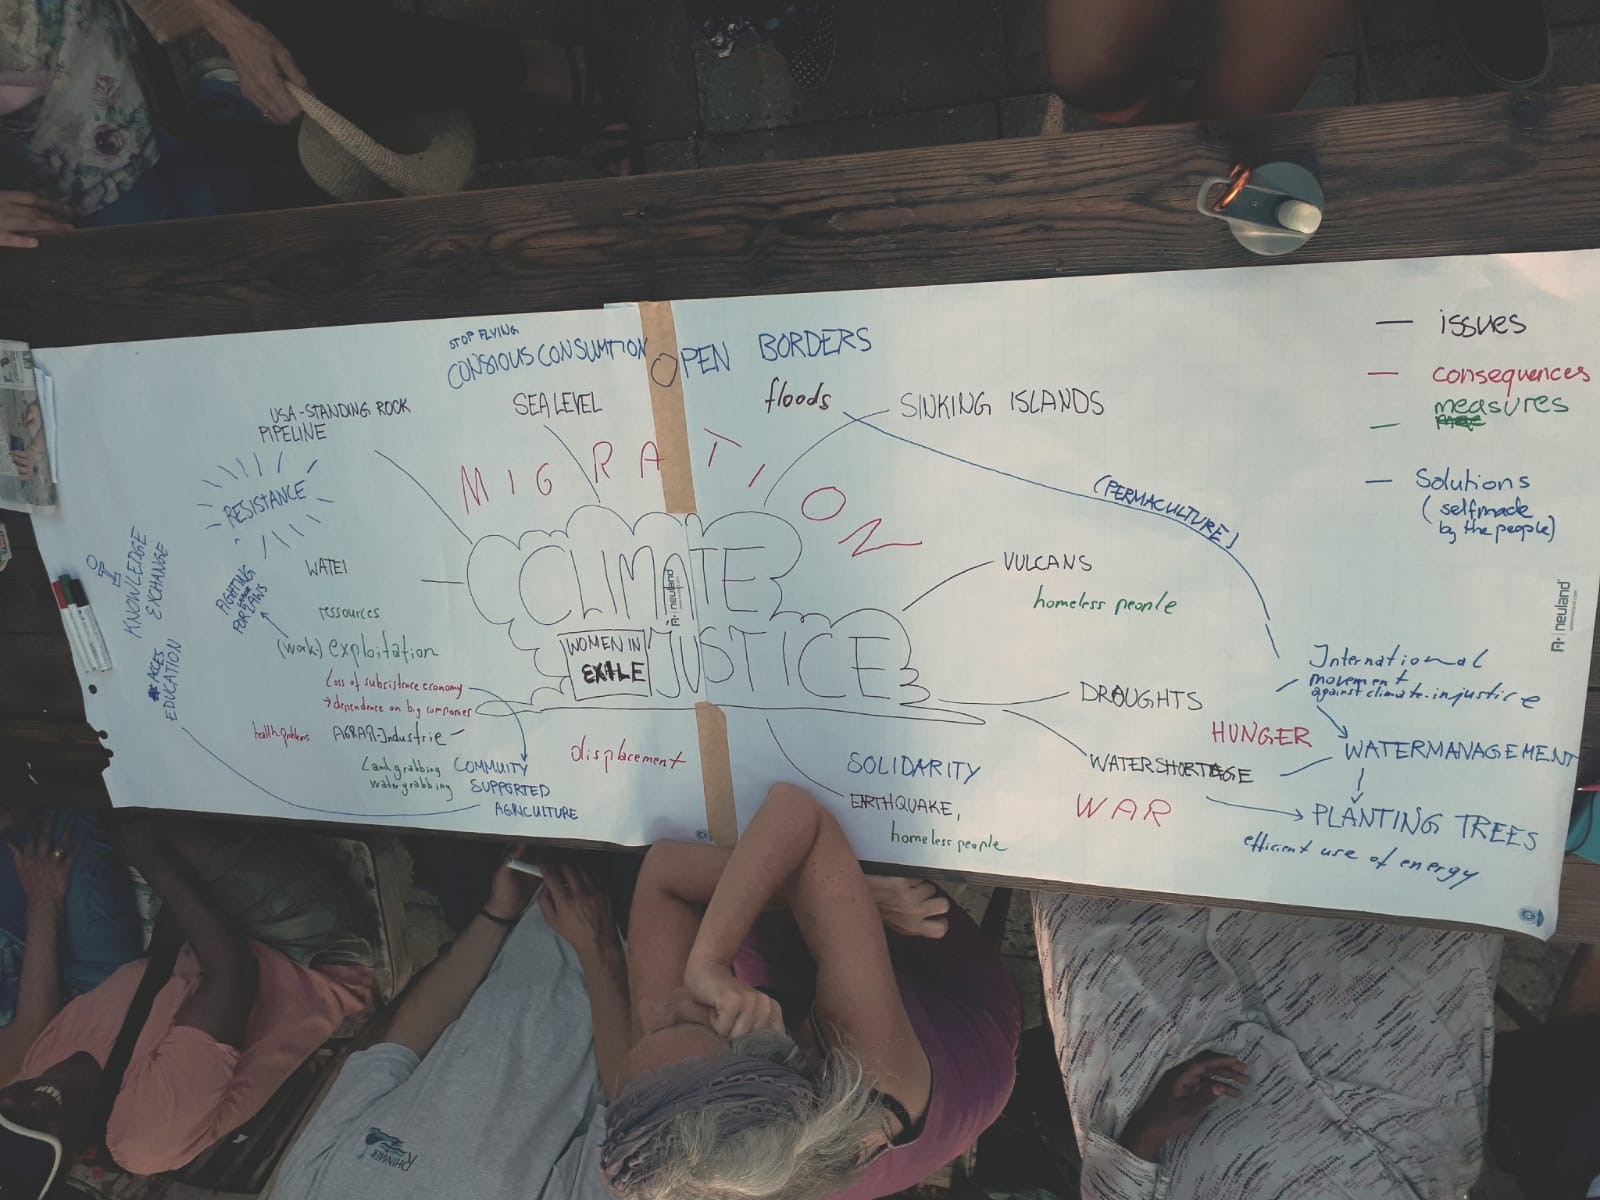 STOP FLYING
CONSIOUS CONSUMTION
OPEN BORDERS
issues
consequences
measures
Solutions
(selfmade
by the people)
USA-STANDING ROCK
PIPELINE
SEA LEVEL
floods
SINKING ISLANDS
MIGRATION
RESISTANCE
(PERMACULTURE)
KNOWLEDGE
EXCHANGE
EDUCATION
FIGHTING
FOR
WATER
CLIMATE
JUSTICE
WOMEN IN
EXILE
neuland
VULCANS
homeless people
neuland
ressources
(work) exploitation
Loss of subsistence economy
→ dependence on big companies
health problems
AGRAR-Industrie
Landgrabbing
watergrabbing
COMMUITY
SUPPORTED
AGRICULTURE
displacement
DROUGHTS
International
movement
against climate-injustice
HUNGER
WATERMANAGEMENT
SOLIDARITY
WATERSHORTAGE
EARTHQUAKE,
homeless people
WAR
PLANTING TREES
efficient use of energy
RHINMEER